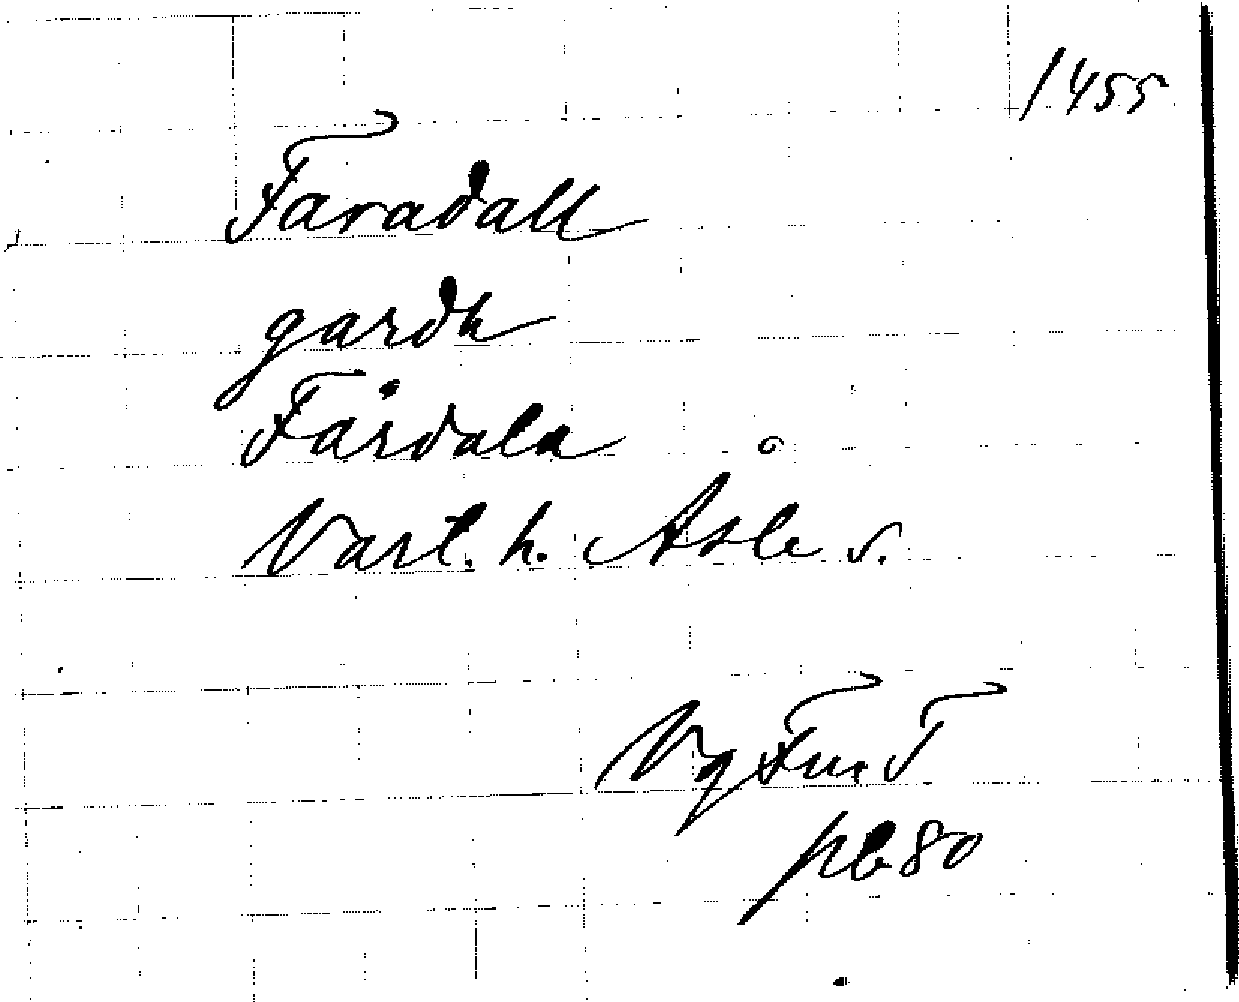 1455
Faradall
gardh
Fårdala
Vart. h. Åsle s.
Vg Fur T
pb 80